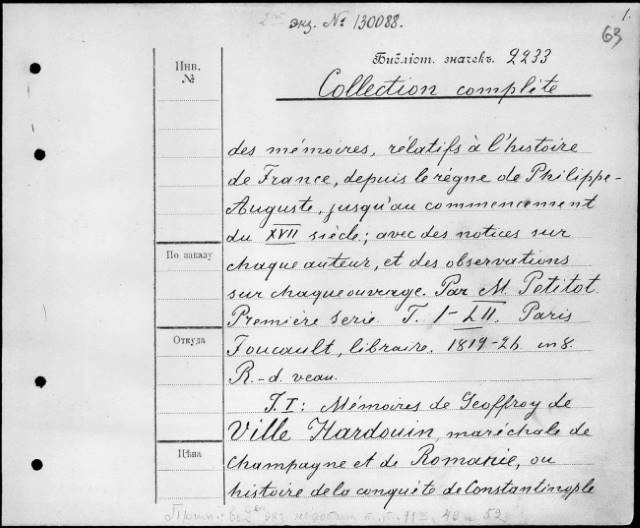 2ой экз. № 130088.
1.
63
Библіот. значекъ. 2233
Collection complète
Инв.
№
des mémoires, rélatifs à l'histoire
de France, depuis le règne de Philippe-
Auguste, jusqu'au commencement
du XVII siècle; avec des notices sur
По заказу
chaque auteur, et des observations
sur chaque ouvrage. Par M. Petitot.
Première serie. T. I-LII. Paris
Откуда
Foucault, libraire. 1819-26. in 8.
R.-d. veau.
T. I: Mémoires de Geoffroy de
Ville Hardouin, maréchale de
Цѣна
Champagne et de Romanie, ou
histoire de la conquête de Constantinople
экз. т.т. 49 и 52